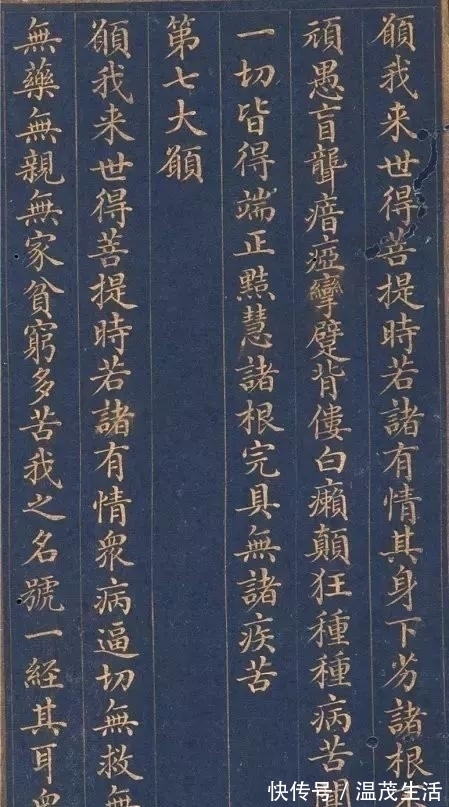 願我来世得菩提時若諸有情其身下劣諸根
頑愚盲聾瘖瘂攣躄背僂白癩顛狂種種病苦聞
一切皆得端正黠慧諸根完具無諸疾苦
第七大願
願我来世得菩提時若諸有情衆病逼切無救無
無藥無親無家貧窮多苦我之名號一経其耳衆
快传号/温茂生活